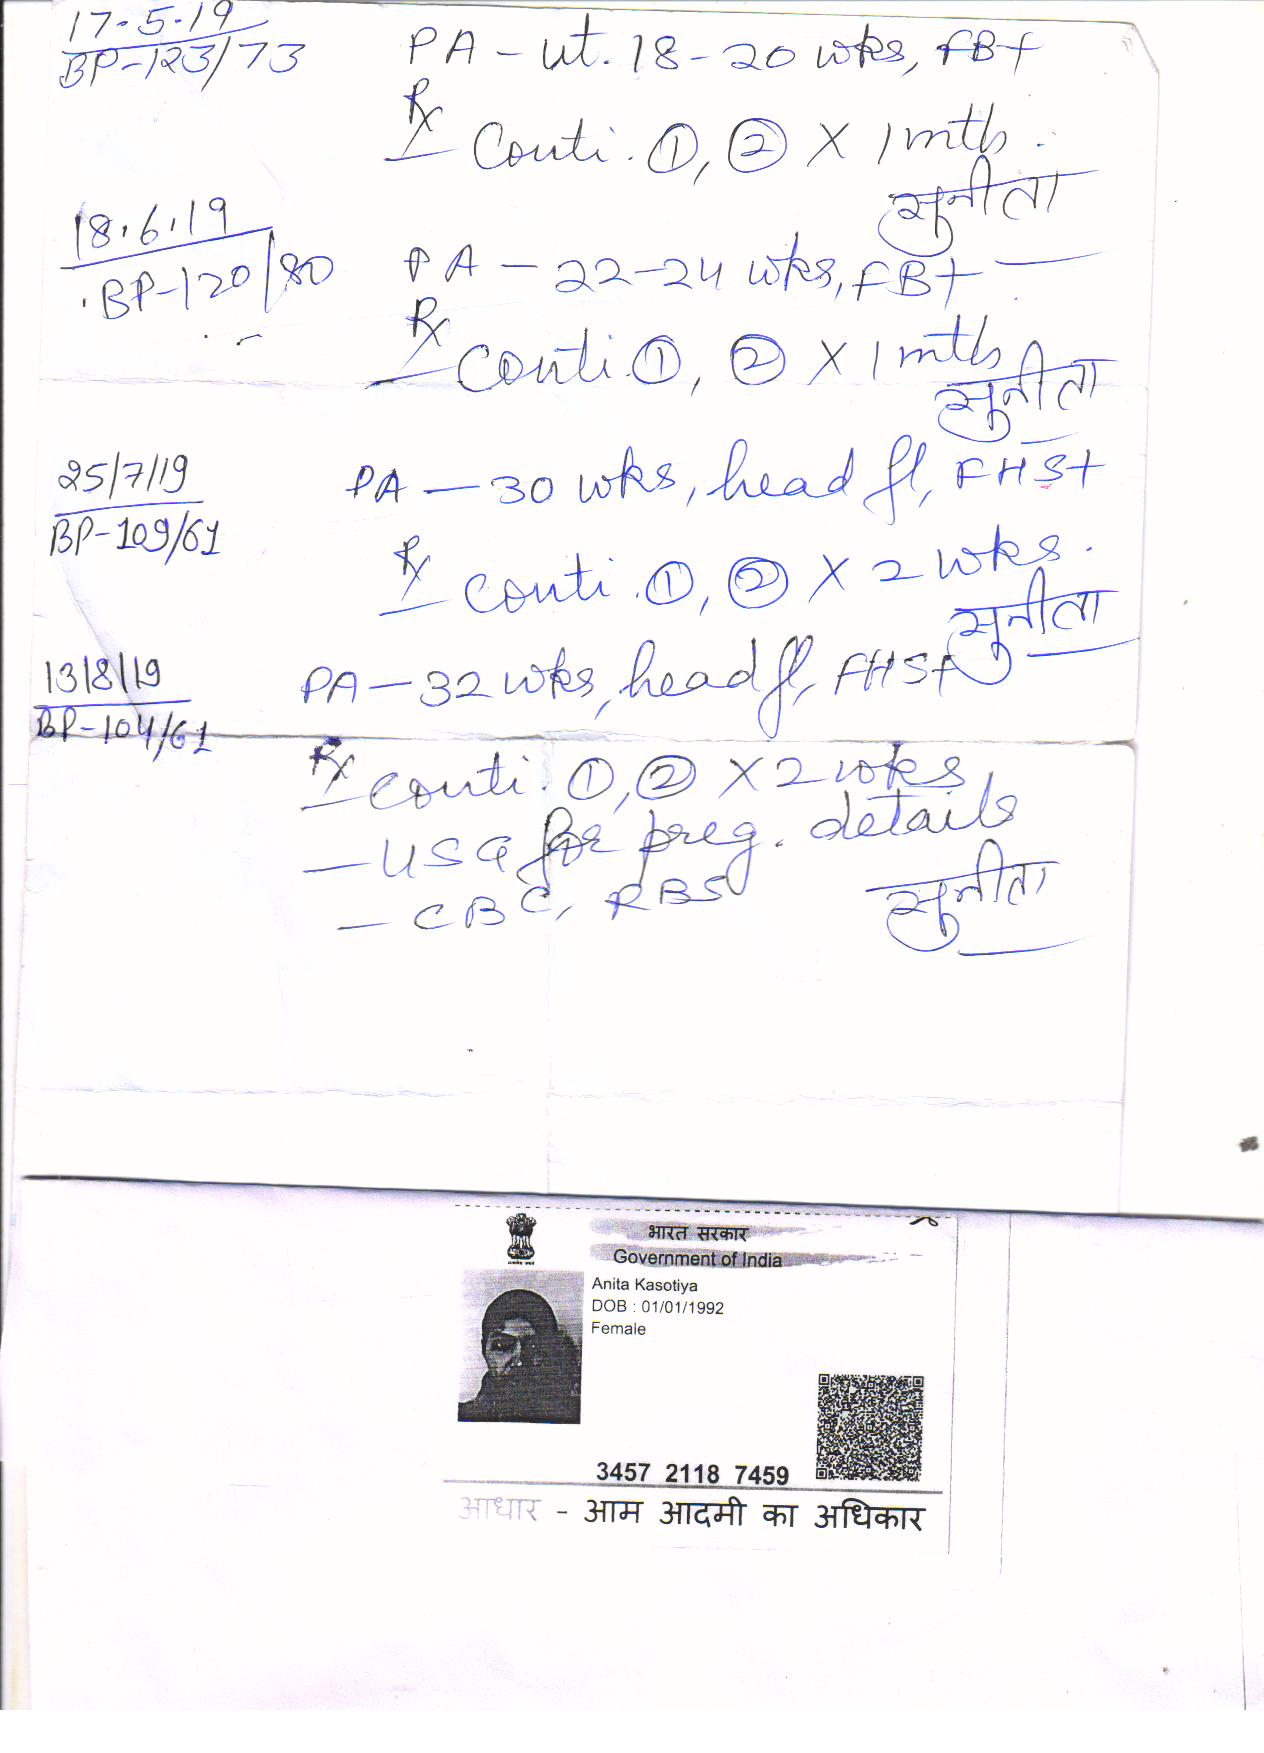 17-5-19
BP-123/73
PA - ut. 18-20 wks, FB+
Rx
Conti. ①, ② X 1 mth.
सुनीता
18.6.19
BP-120/80
PA - 22-24 wks, FB+
Rx
Conti. ①, ② X 1 mth
सुनीता
25/7/19
BP-109/61
PA - 30 wks, head fl, FHS+
Rx
Conti. ①, ② X 2 wks.
सुनीता
13/8/19
BP-104/61
PA - 32 wks, head fl, FHS+
Rx
Conti. ①, ② X 2 wks
- USG for preg. details
- CBC, RBS
सुनीता
भारत सरकार
Government of India
Anita Kasotiya
DOB : 01/01/1992
Female
3457 2118 7459
आधार - आम आदमी का अधिकार